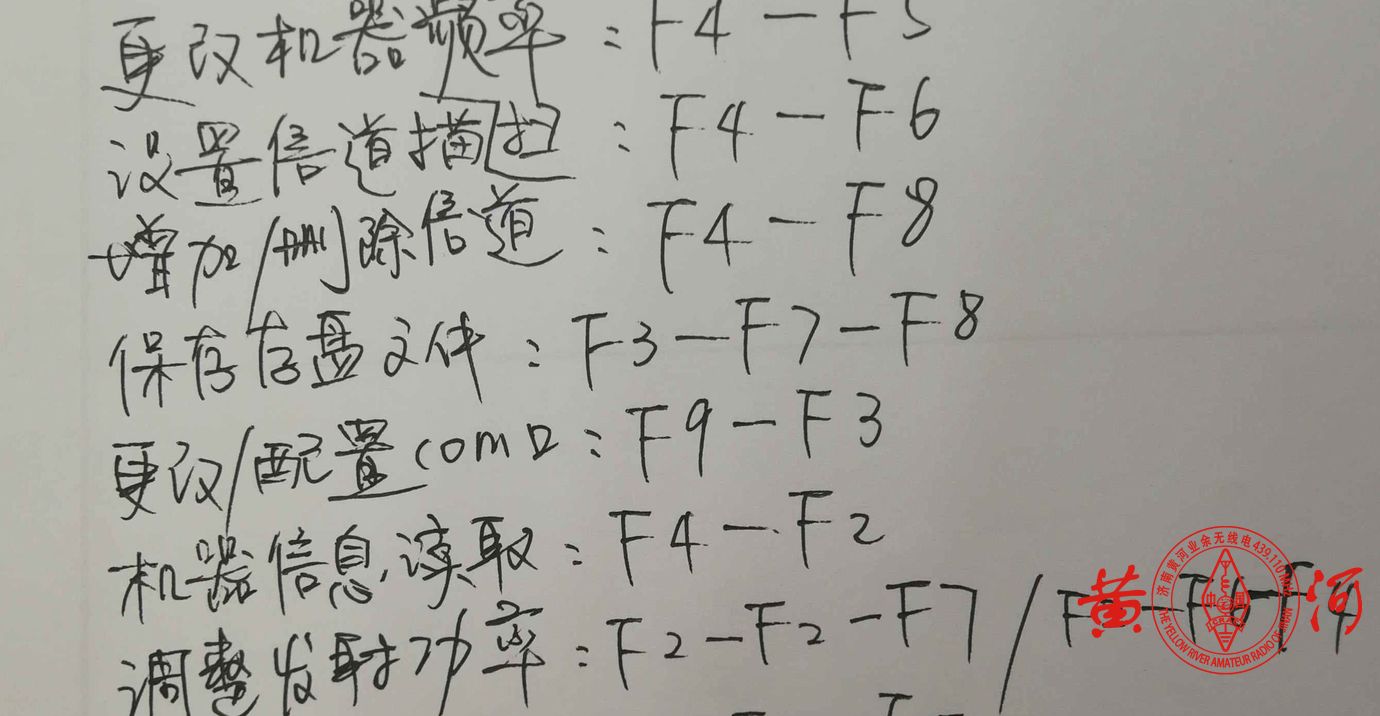 更改机器频率：F4－F5
设置信道描扫：F4－F6
增加/删除信道：F4－F8
保存存盘文件：F3－F7－F8
更改/配置com口：F9－F3
机器信息读取：F4－F2
调整发射功率：F2－F2－F7/
黄河
济南黄河业余无线电439.110MHz
THE YELLOW RIVER AMATEUR RADIO OF JINAN